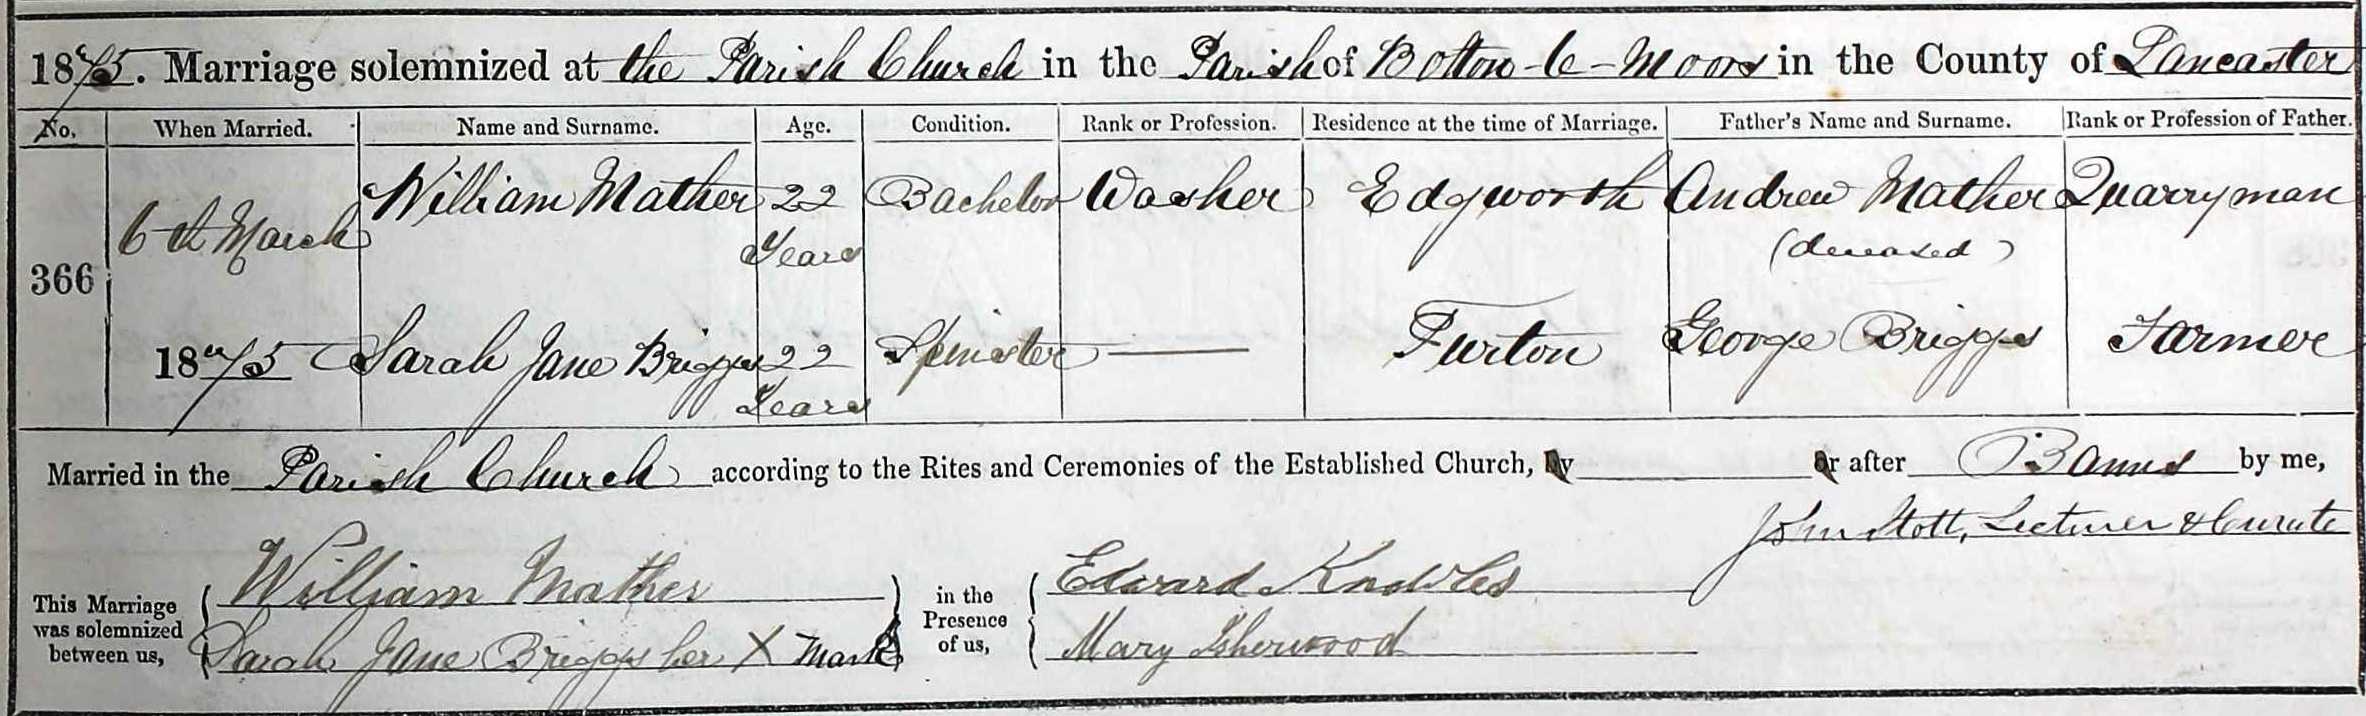 1875. Marriage solemnized at the Parish Church in the Parish of Bolton-le-Moors in the County of Lancaster
No. When Married. Name and Surname. Age. Condition. Rank or Profession. Residence at the time of Marriage. Father's Name and Surname. Rank or Profession of Father.
366 6th March William Mather 22 Years Bachelor Washer Edgworth Andrew Mather (deceased) Quarryman
1875 Sarah Jane Briggs 22 Years Spinster — Turton George Briggs Farmer
Married in the Parish Church according to the Rites and Ceremonies of the Established Church, by or after Banns by me,
John Stott, Lecturer & Curate
This Marriage was solemnized between us, William Mather
Sarah Jane Briggs her X Mark
in the Presence of us, Edward Knowles
Mary Isherwood